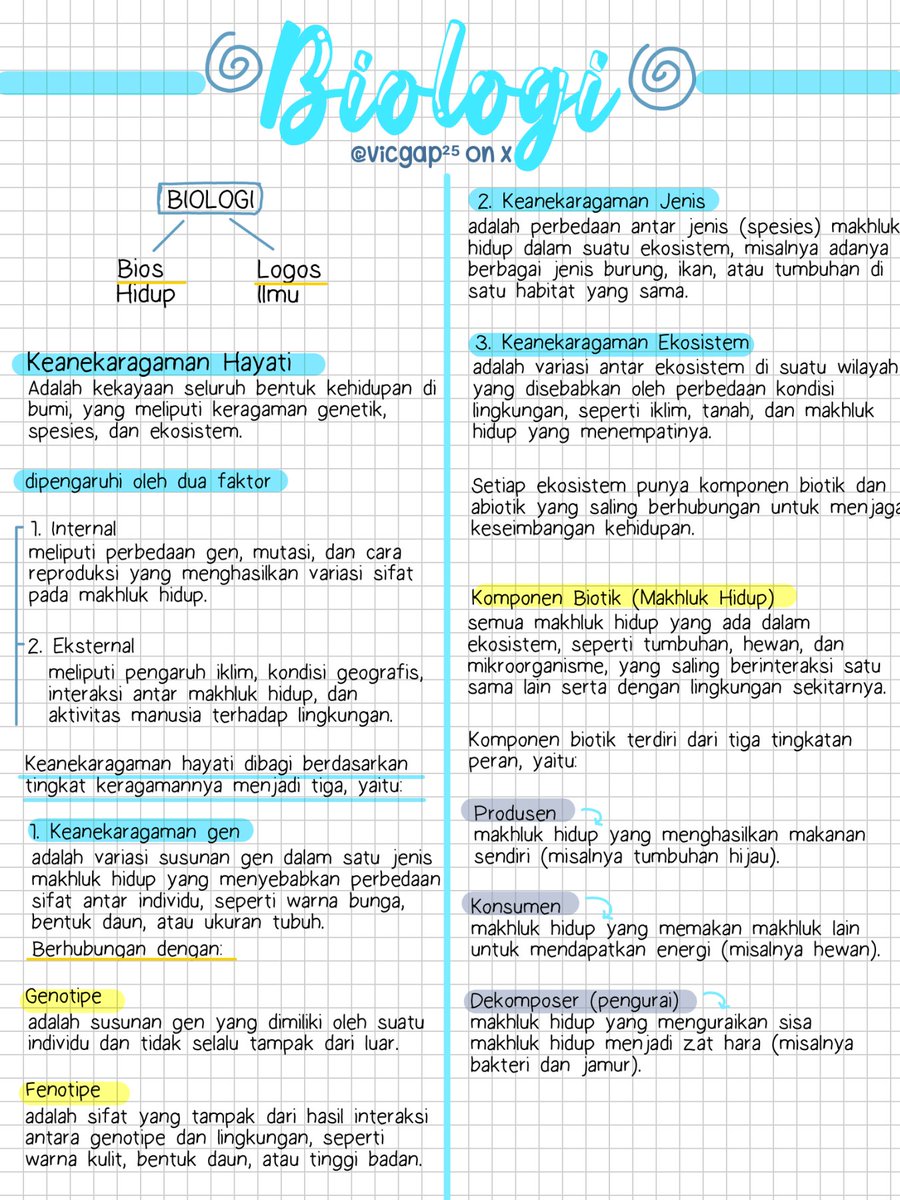 Biologi
@vicgap25 on x
BIOLOGI
Bios
Hidup
Logos
Ilmu
Keanekaragaman Hayati
Adalah kekayaan seluruh bentuk kehidupan di
bumi, yang meliputi keragaman genetik,
spesies, dan ekosistem.
dipengaruhi oleh dua faktor
1. Internal
meliputi perbedaan gen, mutasi, dan cara
reproduksi yang menghasilkan variasi sifat
pada makhluk hidup.
2. Eksternal
meliputi pengaruh iklim, kondisi geografis,
interaksi antar makhluk hidup, dan
aktivitas manusia terhadap lingkungan.
Keanekaragaman hayati dibagi berdasarkan
tingkat keragamannya menjadi tiga, yaitu:
1. Keanekaragaman gen
adalah variasi susunan gen dalam satu jenis
makhluk hidup yang menyebabkan perbedaan
sifat antar individu, seperti warna bunga,
bentuk daun, atau ukuran tubuh.
Berhubungan dengan:
Genotipe
adalah susunan gen yang dimiliki oleh suatu
individu dan tidak selalu tampak dari luar.
Fenotipe
adalah sifat yang tampak dari hasil interaksi
antara genotipe dan lingkungan, seperti
warna kulit, bentuk daun, atau tinggi badan.
2. Keanekaragaman Jenis
adalah perbedaan antar jenis (spesies) makhluk
hidup dalam suatu ekosistem, misalnya adanya
berbagai jenis burung, ikan, atau tumbuhan di
satu habitat yang sama.
3. Keanekaragaman Ekosistem
adalah variasi antar ekosistem di suatu wilayah
yang disebabkan oleh perbedaan kondisi
lingkungan, seperti iklim, tanah, dan makhluk
hidup yang menempatinya.
Setiap ekosistem punya komponen biotik dan
abiotik yang saling berhubungan untuk menjaga
keseimbangan kehidupan.
Komponen Biotik (Makhluk Hidup)
semua makhluk hidup yang ada dalam
ekosistem, seperti tumbuhan, hewan, dan
mikroorganisme, yang saling berinteraksi satu
sama lain serta dengan lingkungan sekitarnya.
Komponen biotik terdiri dari tiga tingkatan
peran, yaitu:
Produsen
makhluk hidup yang menghasilkan makanan
sendiri (misalnya tumbuhan hijau).
Konsumen
makhluk hidup yang memakan makhluk lain
untuk mendapatkan energi (misalnya hewan).
Dekomposer (pengurai)
makhluk hidup yang menguraikan sisa
makhluk hidup menjadi zat hara (misalnya
bakteri dan jamur).